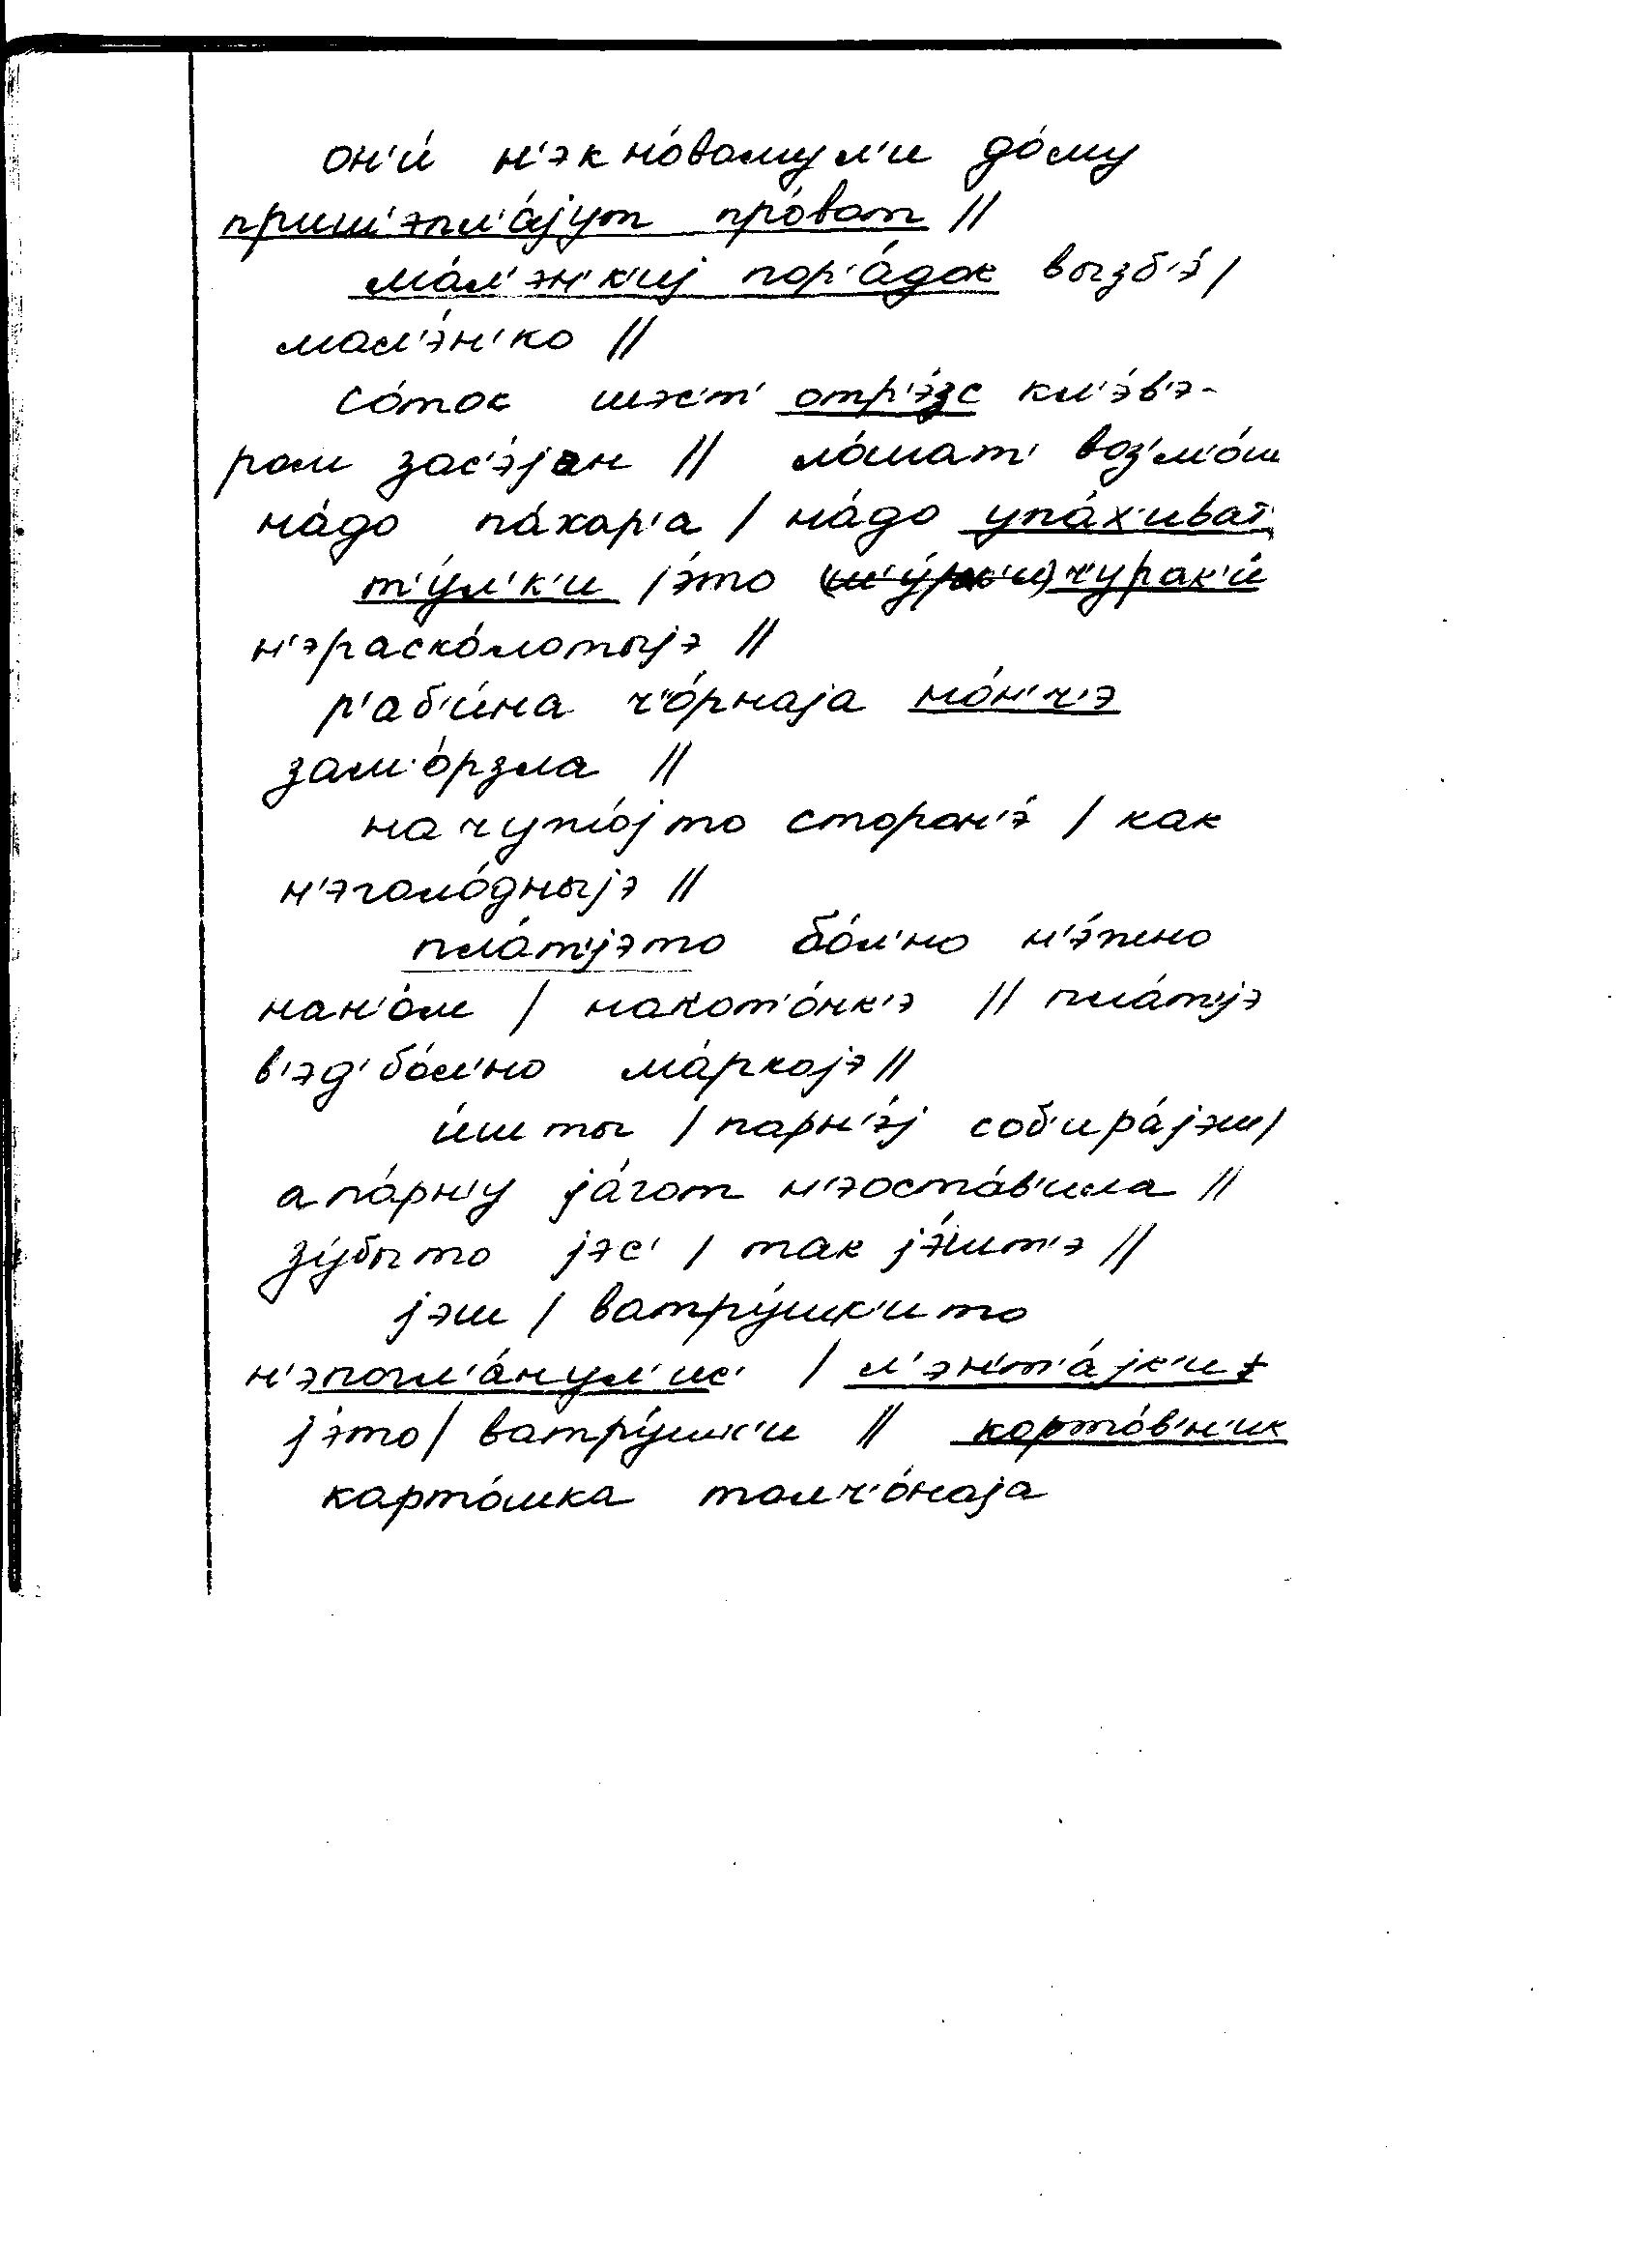 он'и́ н'экно́вомул'и до́му
приш'эпл'а́jут про́ват //
ма́л'эн'к'иj пор'а́док вызб'э́ /
мал'э́н'ко //
со́ток шэс'т' отр'э́зс кл'э́в'э-
ром зас'э́jан // ло́шат' воз'м'о́ш
на́до па́хар'а / на́до упа́х'иват'
т'у́л'к'и / э́то ч'урак'и́
н'эраско́лотыjэ //
р'аб'и́на ч'о́рнаjа но́н'ч'э
зам'о́рзла //
начужо́jто сторон'э́ / как
н'эголо́дныjэ //
пла́т'jэто бо́л'но н'э́жно
нан'о́м / накот'о́нк'э // пла́т'jэ
в'эд'бо́л'но ма́ркоjэ //
и́ш ты / парн'э́j соб'ира́jэш /
апа́рн'у jа́гот н'эоста́в'ила //
зу́быто jэс' / так jэ́шт'э //
jэш / ватру́шк'ито
н'эпогл'а́нул'ис' / л'энт'а́jк'и
jэ́то / ватру́шк'и // карто́в'н'ик
карто́шка толч'о́наjа